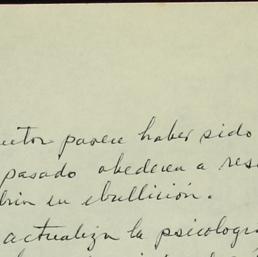 parece haber sido
pasado obedecen a res
en ebullición.
actualiza la psicolog